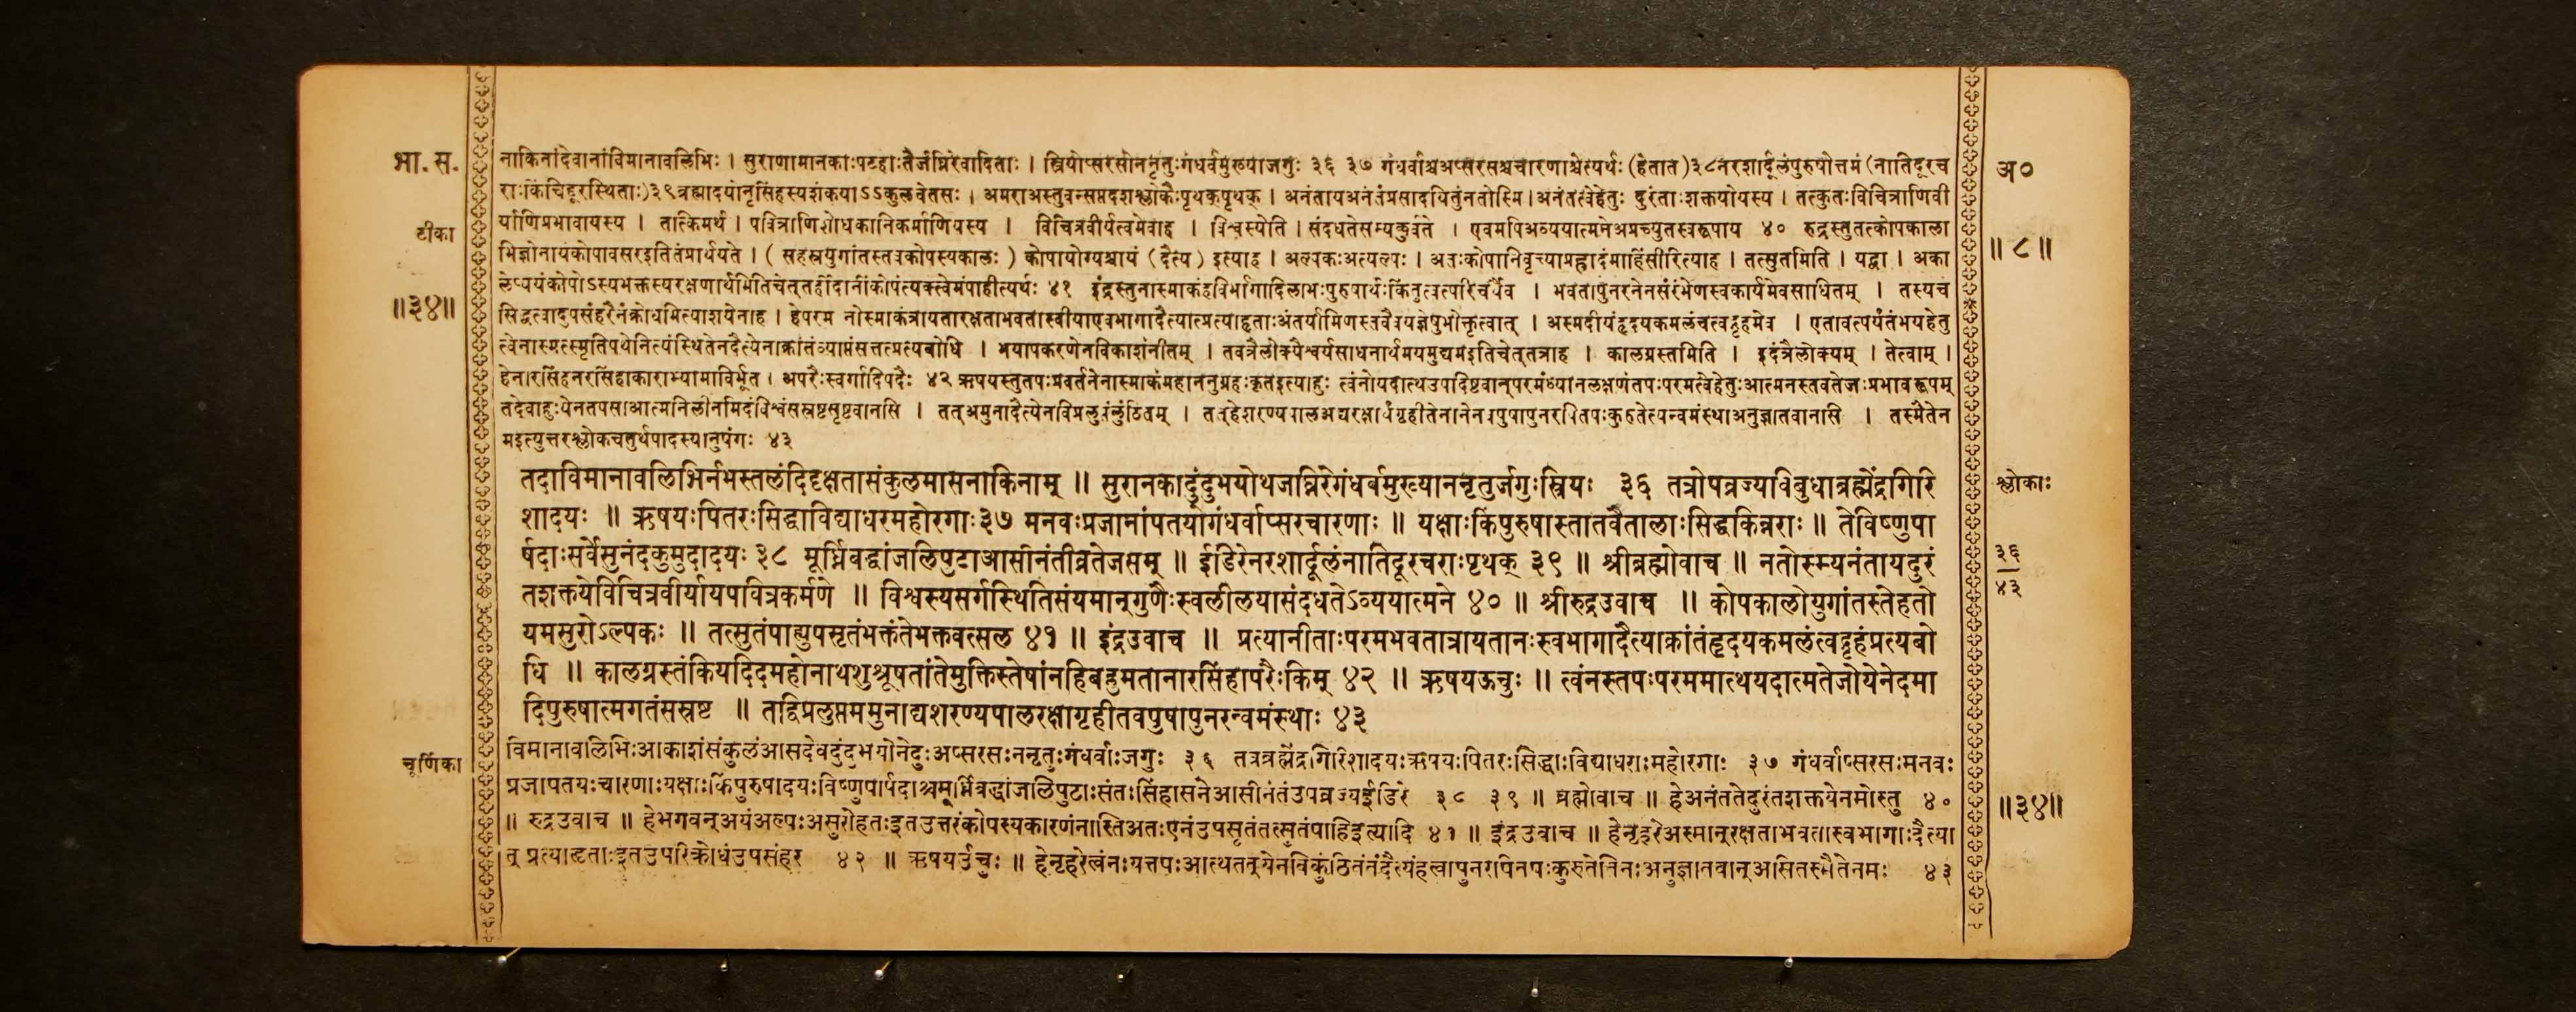 भा. स.
टीका
॥३४॥
नाकिनांदेवानांविमानावलिभिः । सुराणामानकाःपटहाःतैर्जघ्निरेवादिताः । स्त्रियोप्सरसोननृतुःगंधर्वमुख्याजगुः ३६ ३७ गंधर्वाश्चअप्सरसश्चचारणाश्चेत्यर्थः (हेतात) ३८ नरशार्दूलंपुरुषोत्तमं (नातिदूरच
राःकिंचिद्दूरस्थिताः) ३९ ब्रह्मादयोनृसिंहस्यशंकयाऽऽकुलचेतसः । अमराअस्तुवन्सप्तदशश्लोकैःपृथक्पृथक् । अनंतायअनंतंप्रसादयितुंनतोस्मि । अनंतत्वेहेतुः दुरंताःशक्तयोयस्य । तत्कुतःविचित्राणिवी
र्याणिप्रभावायस्य । तत्किमर्थं । पवित्राणिशोधकानिकर्माणियस्य । विचित्रवीर्यत्वमेवाह । विश्वस्येति । संदधतेसम्यक्कुर्वते । एवमपिअव्ययात्मनेअप्रच्युतस्वरूपाय ४० रुद्रस्तुतत्कोपकाला
भिज्ञोनायंकोपावसरइतितंप्रार्थयते । ( सहस्रयुगांतस्तवकोपस्यकालः ) कोपायोग्यश्चायं (दैत्य) इत्याह । अल्पकःअत्यल्पः । अतःकोपानिवृत्त्याप्रह्लादंमाहिंसीरित्याह । तत्सुतमिति । यद्वा । अका
लेप्ययंकोपोऽस्यभक्तस्यरक्षणार्थमितिचेत्तर्हीदानींकोपंत्यक्त्वेमंपाहीत्यर्थः ४१ इंद्रस्तुनास्माकंहविर्भागादिलाभःपुरुषार्थःकिंतुत्वत्परिचर्यैव । भवतापुनरनेनसंरंभेणस्वकार्यमेवसाधितम् । तस्यच
सिद्धत्वादुपसंहरैनंक्रोधमित्याशयेनाह । हेपरम नोस्माकंत्रायतारक्षताभवतास्वीयाएवभागादैत्यात्प्रत्याहृताःअंतर्यामिणस्तवैवयज्ञेषुभोक्तृत्वात् । अस्मदीयंहृदयकमलंचत्वद्गृहमेव । एतावत्पर्यंतंभयहेतु
त्वेनास्मत्स्मृतिपथेनित्यंस्थितेनदैत्येनाक्रांतंव्याप्तंसत्तत्प्रत्यबोधि । भयापकरणेनविकाशंनीतम् । तवत्रैलोक्यैश्वर्यसाधनार्थमयमुद्यमइतिचेत्तत्राह । कालग्रस्तमिति । इदंत्रैलोक्यम् । तेत्वाम् ।
हेनारसिंहनरसिंहाकाराभ्यामाविर्भूत । अपरैःस्वर्गादिपदैः ४२ ऋषयस्तुतपःप्रवर्तनेनास्माकंमहाननुग्रहःकृतइत्याहुः त्वंनोयदात्थउपदिष्टवान्परमंध्यानलक्षणंतपःपरमत्वेहेतुःआत्मनस्तवतेजःप्रभावरूपम्
तदेवाहुःयेनतपसाआत्मनिलीनमिदंविश्वंसस्रष्टसृष्टवानसि । तत्अमुनादैत्येनविप्रलुप्तंलुंठितम् । तत्हेशरण्यपालअद्यरक्षार्थंगृहीतेनानेनवपुषापुनरपितपःकुरुतेत्यन्वमंस्थाअनुज्ञातवानासि । तस्मैतेन
मइत्युत्तरश्लोकचतुर्थपादस्यानुषंगः ४३
तदाविमानावलिभिर्नभस्तलंदिदृक्षतासंकुलमासनाकिनाम् ॥ सुरानकादुंदुभयोथजघ्निरेगंधर्वमुख्याननृतुर्जगुःस्त्रियः ३६ तत्रोपव्रज्यविबुधाब्रह्मेंद्रगिरि
शादयः ॥ ऋषयःपितरःसिद्धाविद्याधरमहोरगाः३७ मनवःप्रजानांपतयोगंधर्वाप्सरचारणाः ॥ यक्षाःकिंपुरुषास्तातवैतालाःसिद्धकिन्नराः ॥ तेविष्णुपा
र्षदाःसर्वेसुनंदकुमुदादयः ३८ मूर्ध्निबद्धांजलिपुटाआसीनंतीव्रतेजसम् ॥ ईडिरेनरशार्दूलंनातिदूरचराःपृथक् ३९ ॥ श्रीब्रह्मोवाच ॥ नतोस्म्यनंतायदुरं
तशक्तयेविचित्रवीर्यायपवित्रकर्मणे ॥ विश्वस्यसर्गस्थितिसंयमान्गुणैःस्वलीलयासंदधतेऽव्ययात्मने ४० ॥ श्रीरुद्रउवाच ॥ कोपकालोयुगांतस्तेहतो
यमसुरोऽल्पकः ॥ तत्सुतंपाह्युपसृतंभक्तंतेभक्तवत्सल ४१ ॥ इंद्रउवाच ॥ प्रत्यानीताःपरमभवतात्रायतानःस्वभागादैत्याक्रांतंहृदयकमलंत्वद्गृहंप्रत्यबो
धि ॥ कालग्रस्तंकियदिदमहोनाथशुश्रूषतांतेमुक्तिस्तेषांनहिबहुमतानारसिंहापरैःकिम् ४२ ॥ ऋषयऊचुः ॥ त्वंनस्तपःपरममात्थयदात्मतेजोयेनेदमा
दिपुरुषात्मगतंसस्रष्ट ॥ तद्विप्रलुप्तममुनाद्यशरण्यपालरक्षागृहीतवपुषापुनरन्वमंस्थाः ४३
चूर्णिका
विमानावलिभिःआकाशंसंकुलंआसदेवदुंदुभयोनेदुःअप्सरसःननृतुःगंधर्वाःजगुः ३६ तत्रब्रह्मेंद्रगिरिशादयःऋषयःपितरःसिद्धाःविद्याधराःमहोरगाः ३७ गंधर्वाप्सरसःमनवः
प्रजापतयःचारणाःयक्षाःकिंपुरुषादयःविष्णुपार्षदाश्चमूर्ध्निबद्धांजलिपुटाःसंतःसिंहासनेआसीनंतंउपव्रज्यईडिरे ३८ ३९ ॥ ब्रह्मोवाच ॥ हेअनंततेदुरंतशक्तयेनमोस्तु ४०
॥ रुद्रउवाच ॥ हेभगवन्अयंअल्पःअसुरोहतःइतउत्तरंकोपस्यकारणंनास्तिअतःएनंउपसृतंतत्सुतंपाहिइत्यादि ४१ ॥ इंद्रउवाच ॥ हेनृहरेअस्मान्रक्षताभवतास्वभागाःदैत्या
त् प्रत्याहृताःइतउपरिक्रोधंउपसंहर ४२ ॥ ऋषयऊचुः ॥ हेनृहरेत्वंनःयत्तपःआत्थतत्येनविकुंठितंतंदैत्यंहत्वापुनरपितपःकुरुतेतिनःअनुज्ञातवान्असितस्मैतेनमः ४३
अ०
॥ ८ ॥
श्लोकाः
३६
४३
॥३४॥